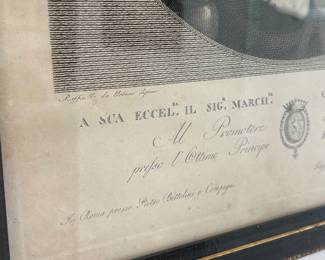 Raffae. V. da Urbino dipinse
A SUA ECCEL.ZA IL SIG.R MARCH.SE
Al Promotore
presso l'Ottimo Principe
In Roma presso Pietro Bettelini e Compagni